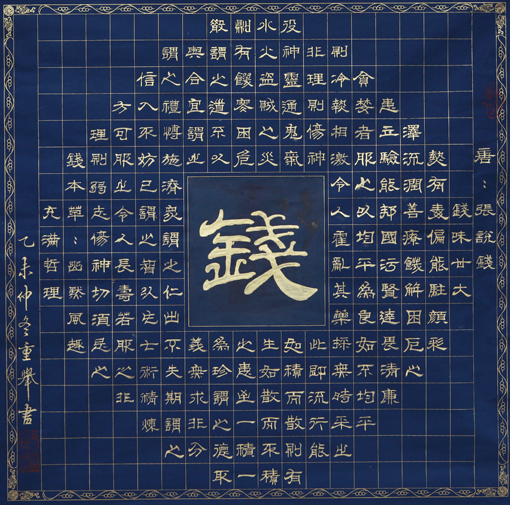 唐：張說錢
錢味甘大
熱有毒偏能駐顏彩
澤流潤善療饑解困厄之
患立驗能邦國污賢達畏清廉
貪婪者服之以均平為良如不均平
則冷熱相激令人霍亂其藥採無時采之
非理則傷神此即流行能
役神靈通鬼氣如積而散則有
水火盜賊之災生如散而不積
則有饑寒困危之患至一積一
散謂之道不以為珍謂之德取
與合宜謂之義無求非分
謂之禮博施濟衆謂之仁出不失期謂之
信入不妨己謂之智以七術精煉
方可服之令人長壽若服之非
理則弱志傷神切須忌之
錢本草：幽默風趣
充滿哲理
乙未仲冬重書
錢